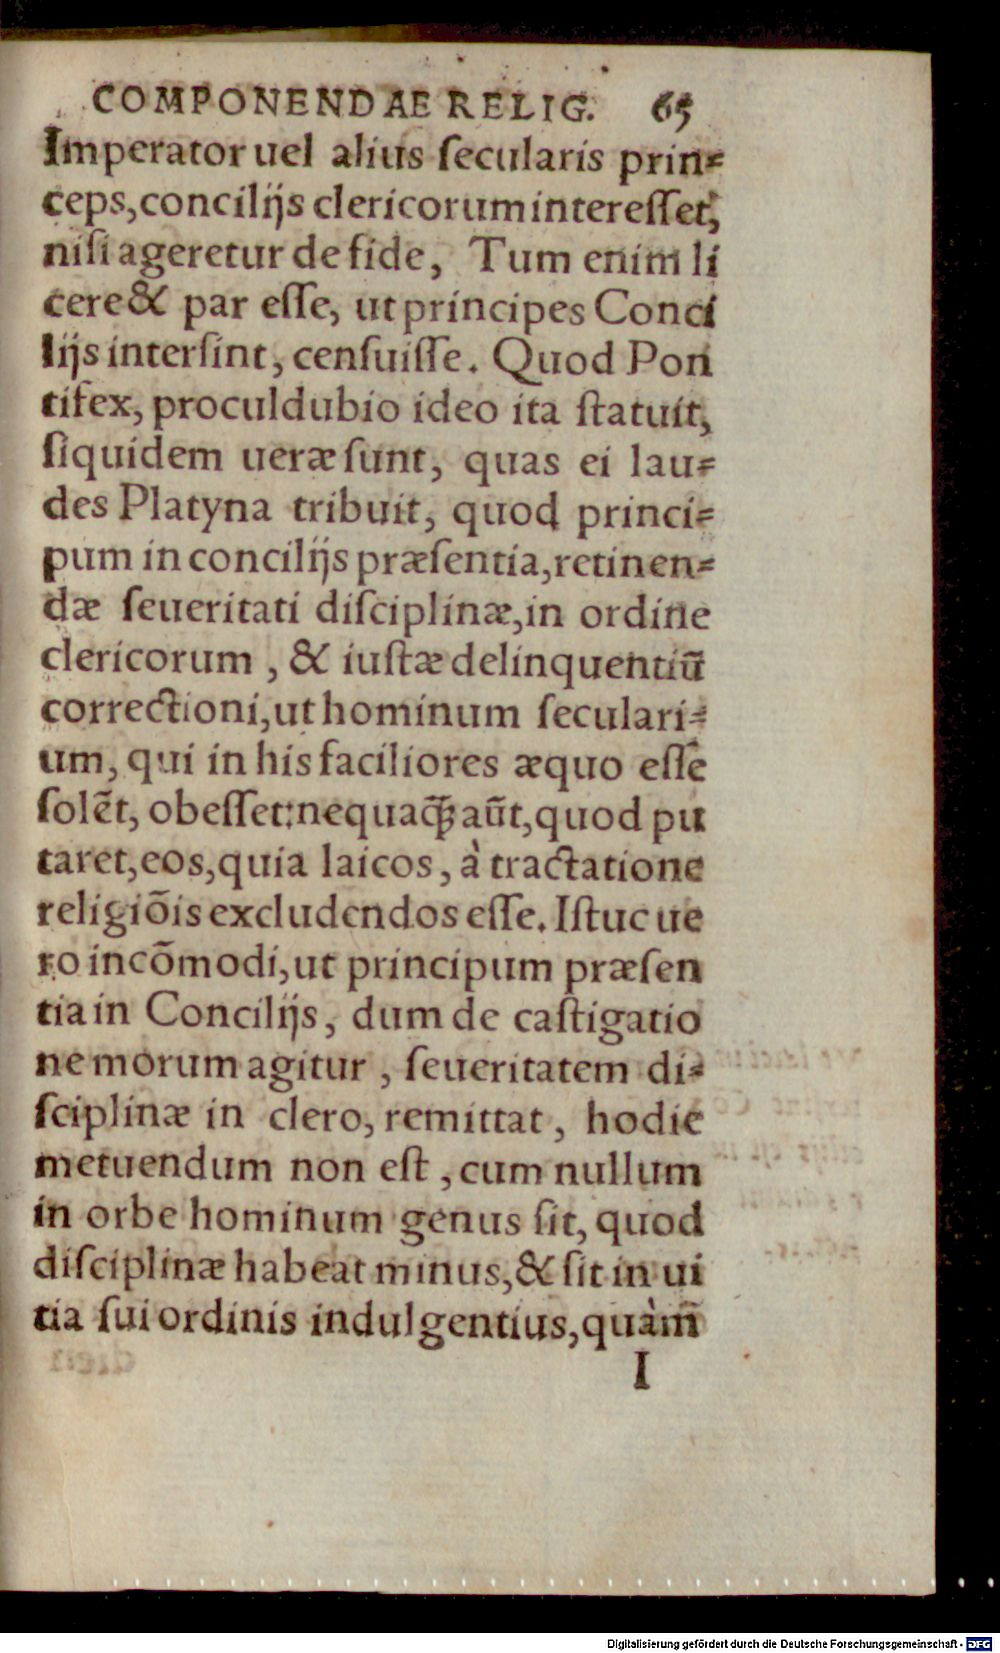 COMPONENDAE RELIG. 65
Imperator uel alius ſecularis prin⸗
ceps, concilijs clericorum intereſſet,
niſi ageretur de fide, Tum enim li
cere & par eſſe, ut principes Conci
lijs interſint, cenſuiſſe. Quod Pon
tifex, proculdubio ideo ita ſtatuit,
ſiquidem ueræ ſunt, quas ei lau⸗
des Platyna tribuit, quod princi⸗
pum in concilijs præſentia, retinen⸗
dæ ſeueritati diſciplinæ, in ordine
clericorum, & iuſtæ delinquentiū
correctioni, ut hominum ſeculari⸗
um, qui in his faciliores æquo eſſe
ſolēt, obeſſet: nequaꝗ̃ aūt, quod pu
taret, eos, quia laicos, à tractatione
religiōis excludendos eſſe. Iſtuc ue
ro incōmodi, ut principum præſen
tia in Concilijs, dum de caſtigatio
ne morum agitur, ſeueritatem di⸗
ſciplinæ in clero, remittat, hodie
metuendum non eſt, cum nullum
in orbe hominum genus ſit, quod
diſciplinæ habeat minus, & ſit in ui
tia ſui ordinis indulgentius, quàm
I
Digitalisierung gefördert durch die Deutsche Forschungsgemeinschaft - DFG